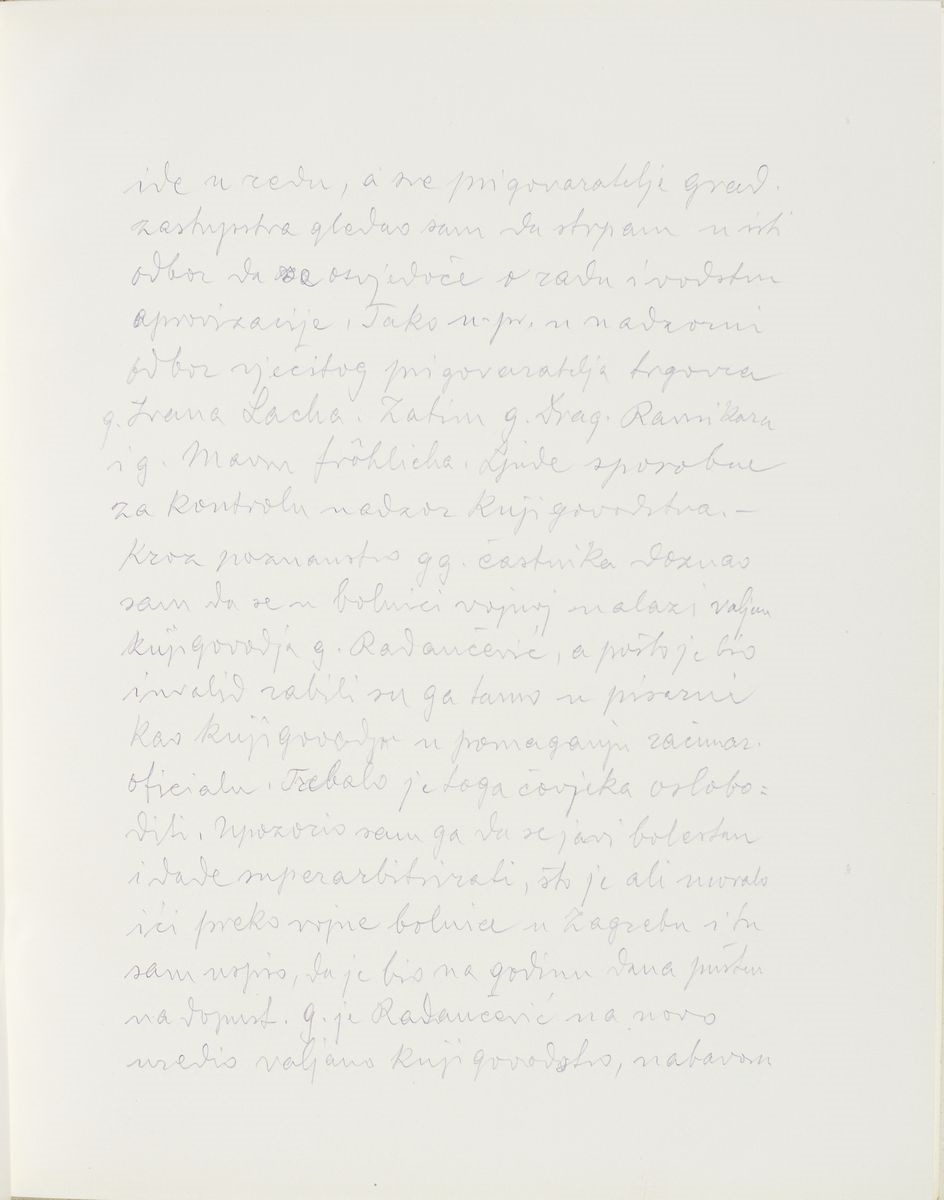 ide u redu, a sve prigovaratelje grad.
zastupstva gledao sam da strpam u isti
odbor da se osvjedoče o radu i vodstvu
aprovizacije. Tako n.pr. u nadzorni
odbor vječitog prigovaratelja trgovca
g. Ivana Lacha. Zatim g. Drag. Ravnikara
i g. Mavru Fröhlicha. Ljude sposobne
za kontrolu nadzor knjigovodstva. –
Kroz poznanstvo gg. častnika doznao
sam da se u bolnici vojnoj nalazi valjan
knjigovodja g. Radaučević, a pošto je bio
invalid rabili su ga tamo u pisarni
kao knjigovodju u pomaganju računar.
oficialu. Trebalo je toga čovjeka oslobo=
diti. Upozorio sam ga da se javi bolestan
i dade superarbitrirati, što je ali moralo
ići preko vojne bolnice u Zagrebu i tu
sam uspio, da je bio na godinu dana pušten
na dopust. g. je Radaučević na novo
uredio valjano knjigovodstvo, nabavom